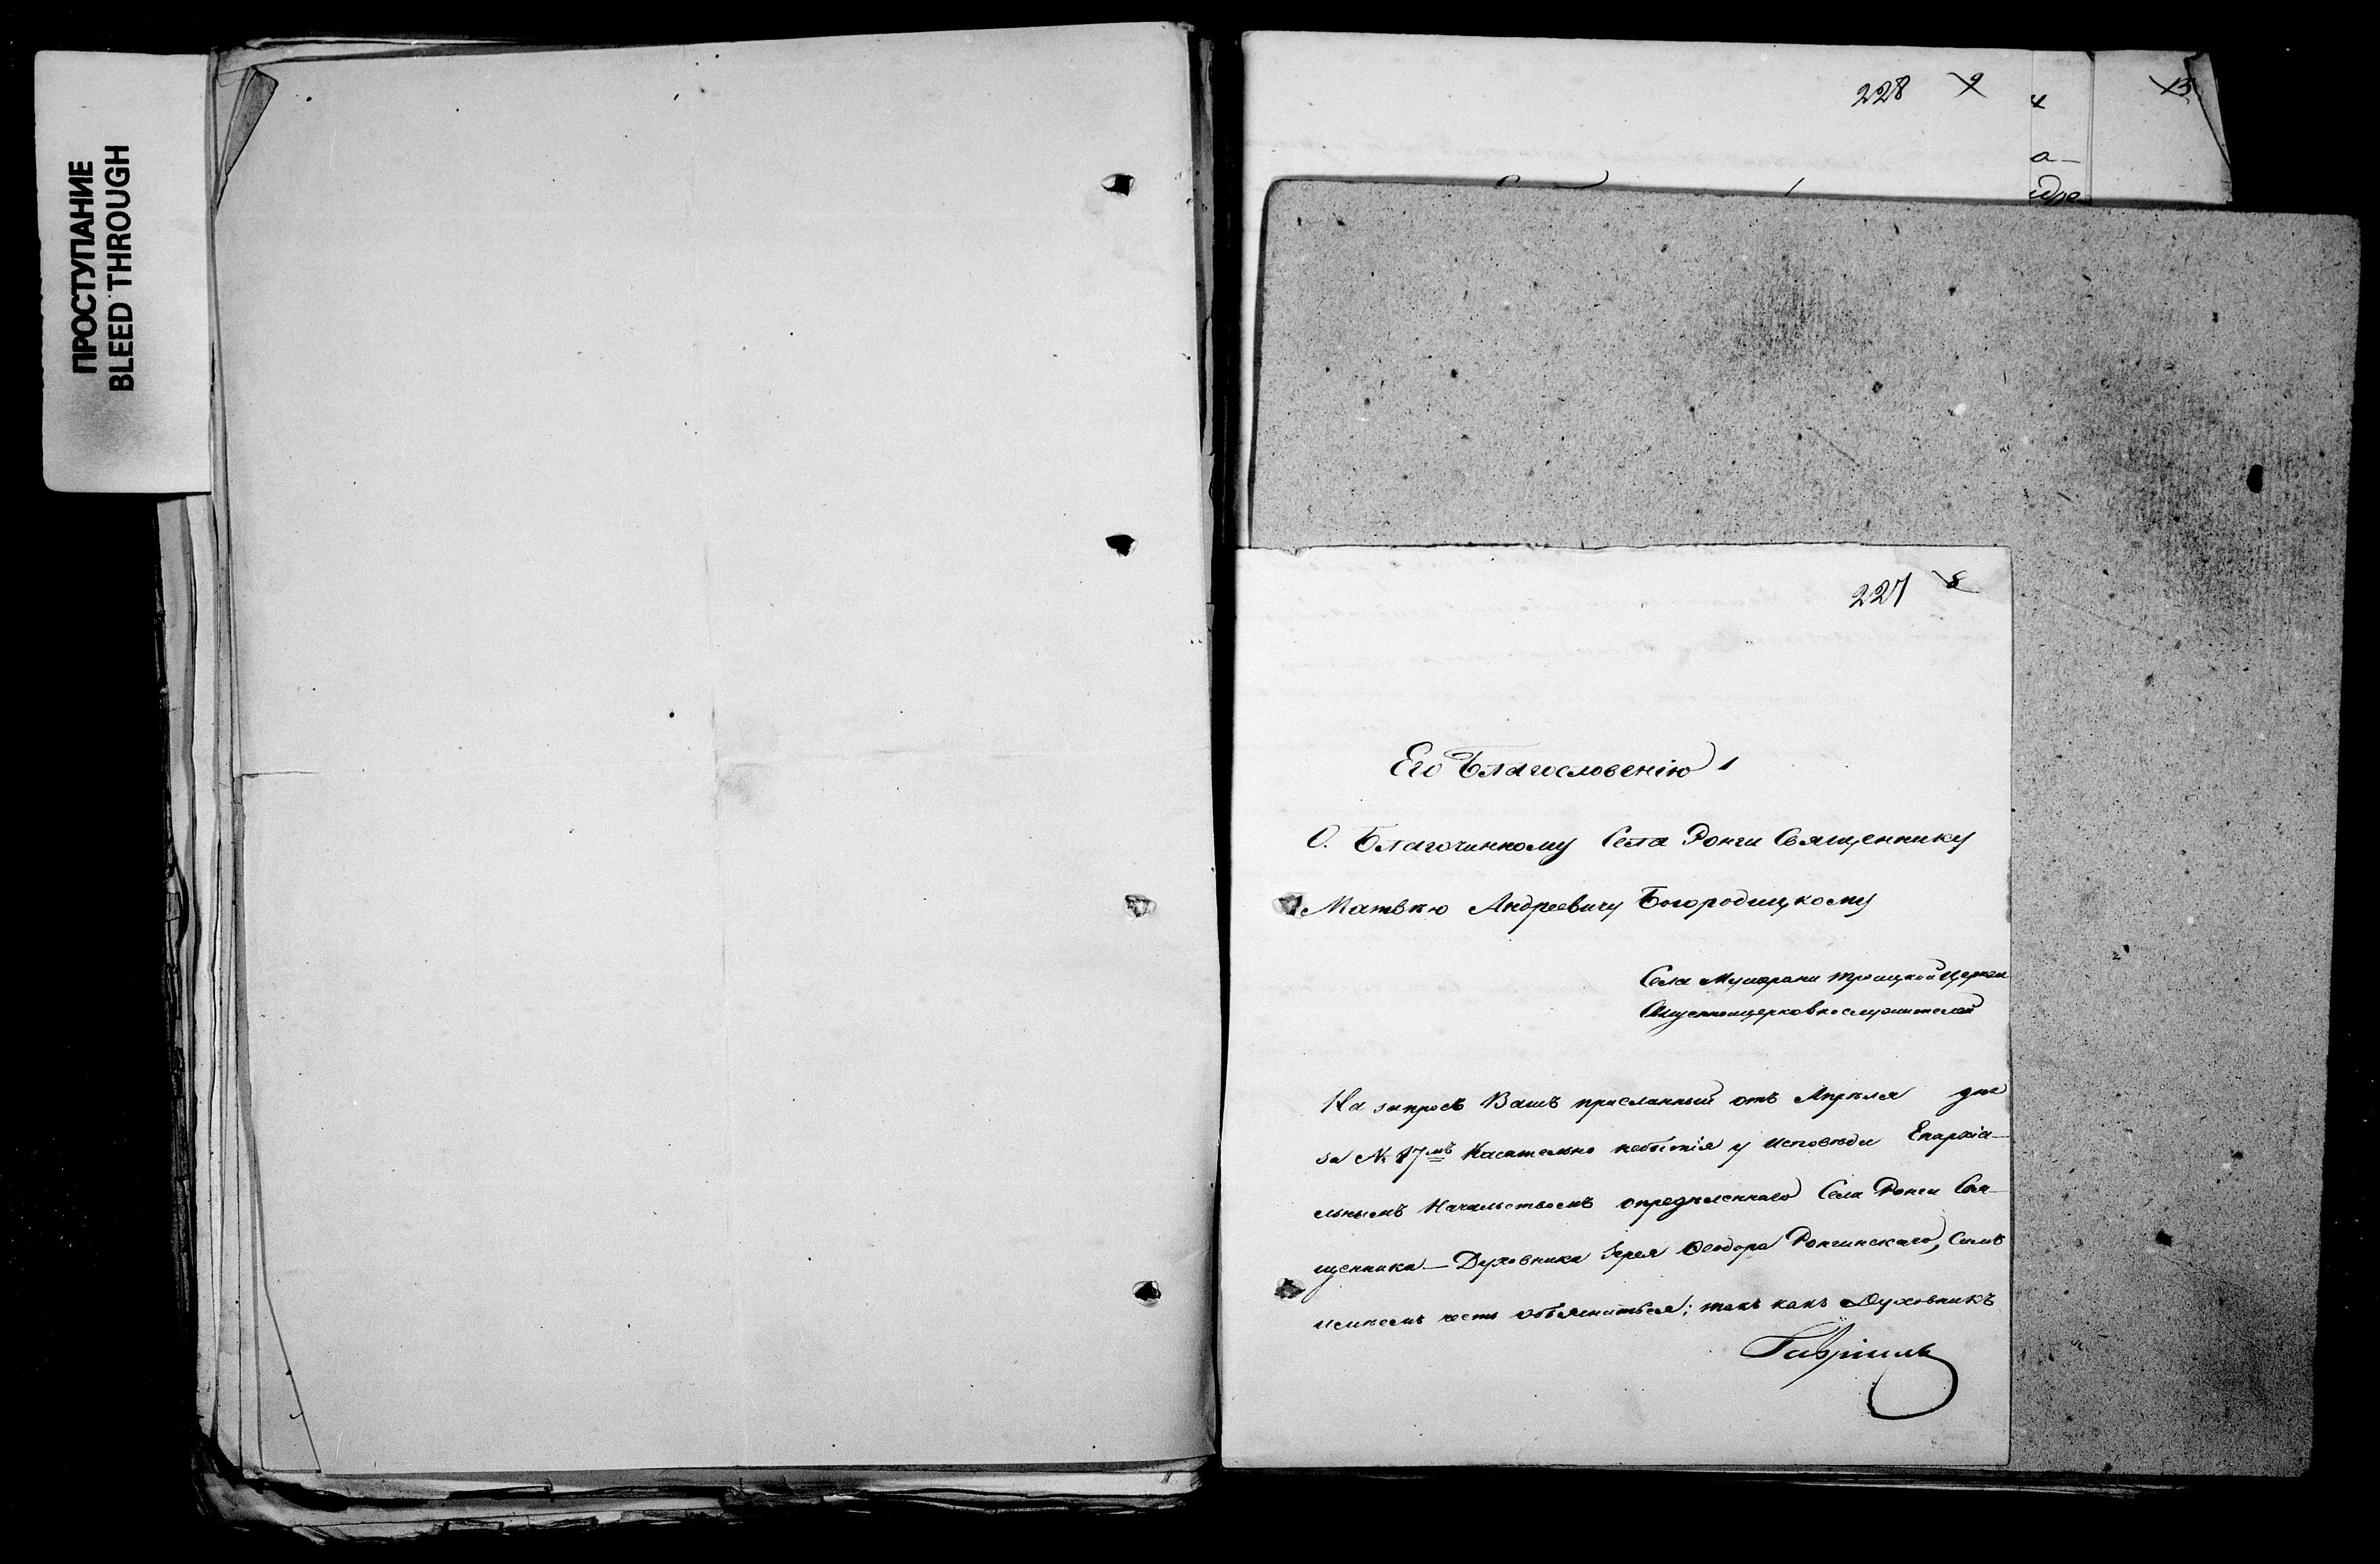 ПРОСТУПАНИЕ
BLEED THROUGH
228 9
13
а-
227 8
Его Благословенію
О. Благочинному Села Ронги Священнику
Матвѣю Андреевичу Богородицкому
Села Троицкой Церкви
Священноцерковнослужителей
На запросъ Вашъ присланный отъ Апрѣля дня
за № 87мъ Касательно небытія у исповѣди Епархіа-
льнымъ Начальствомъ опредѣленнаго Села Ронги Свя-
щенника - Духовника Іерея Ѳеодора Ронгинскаго, Симъ
имѣемъ честь объясниться; такъ какъ Духовникъ
Гавріилъ